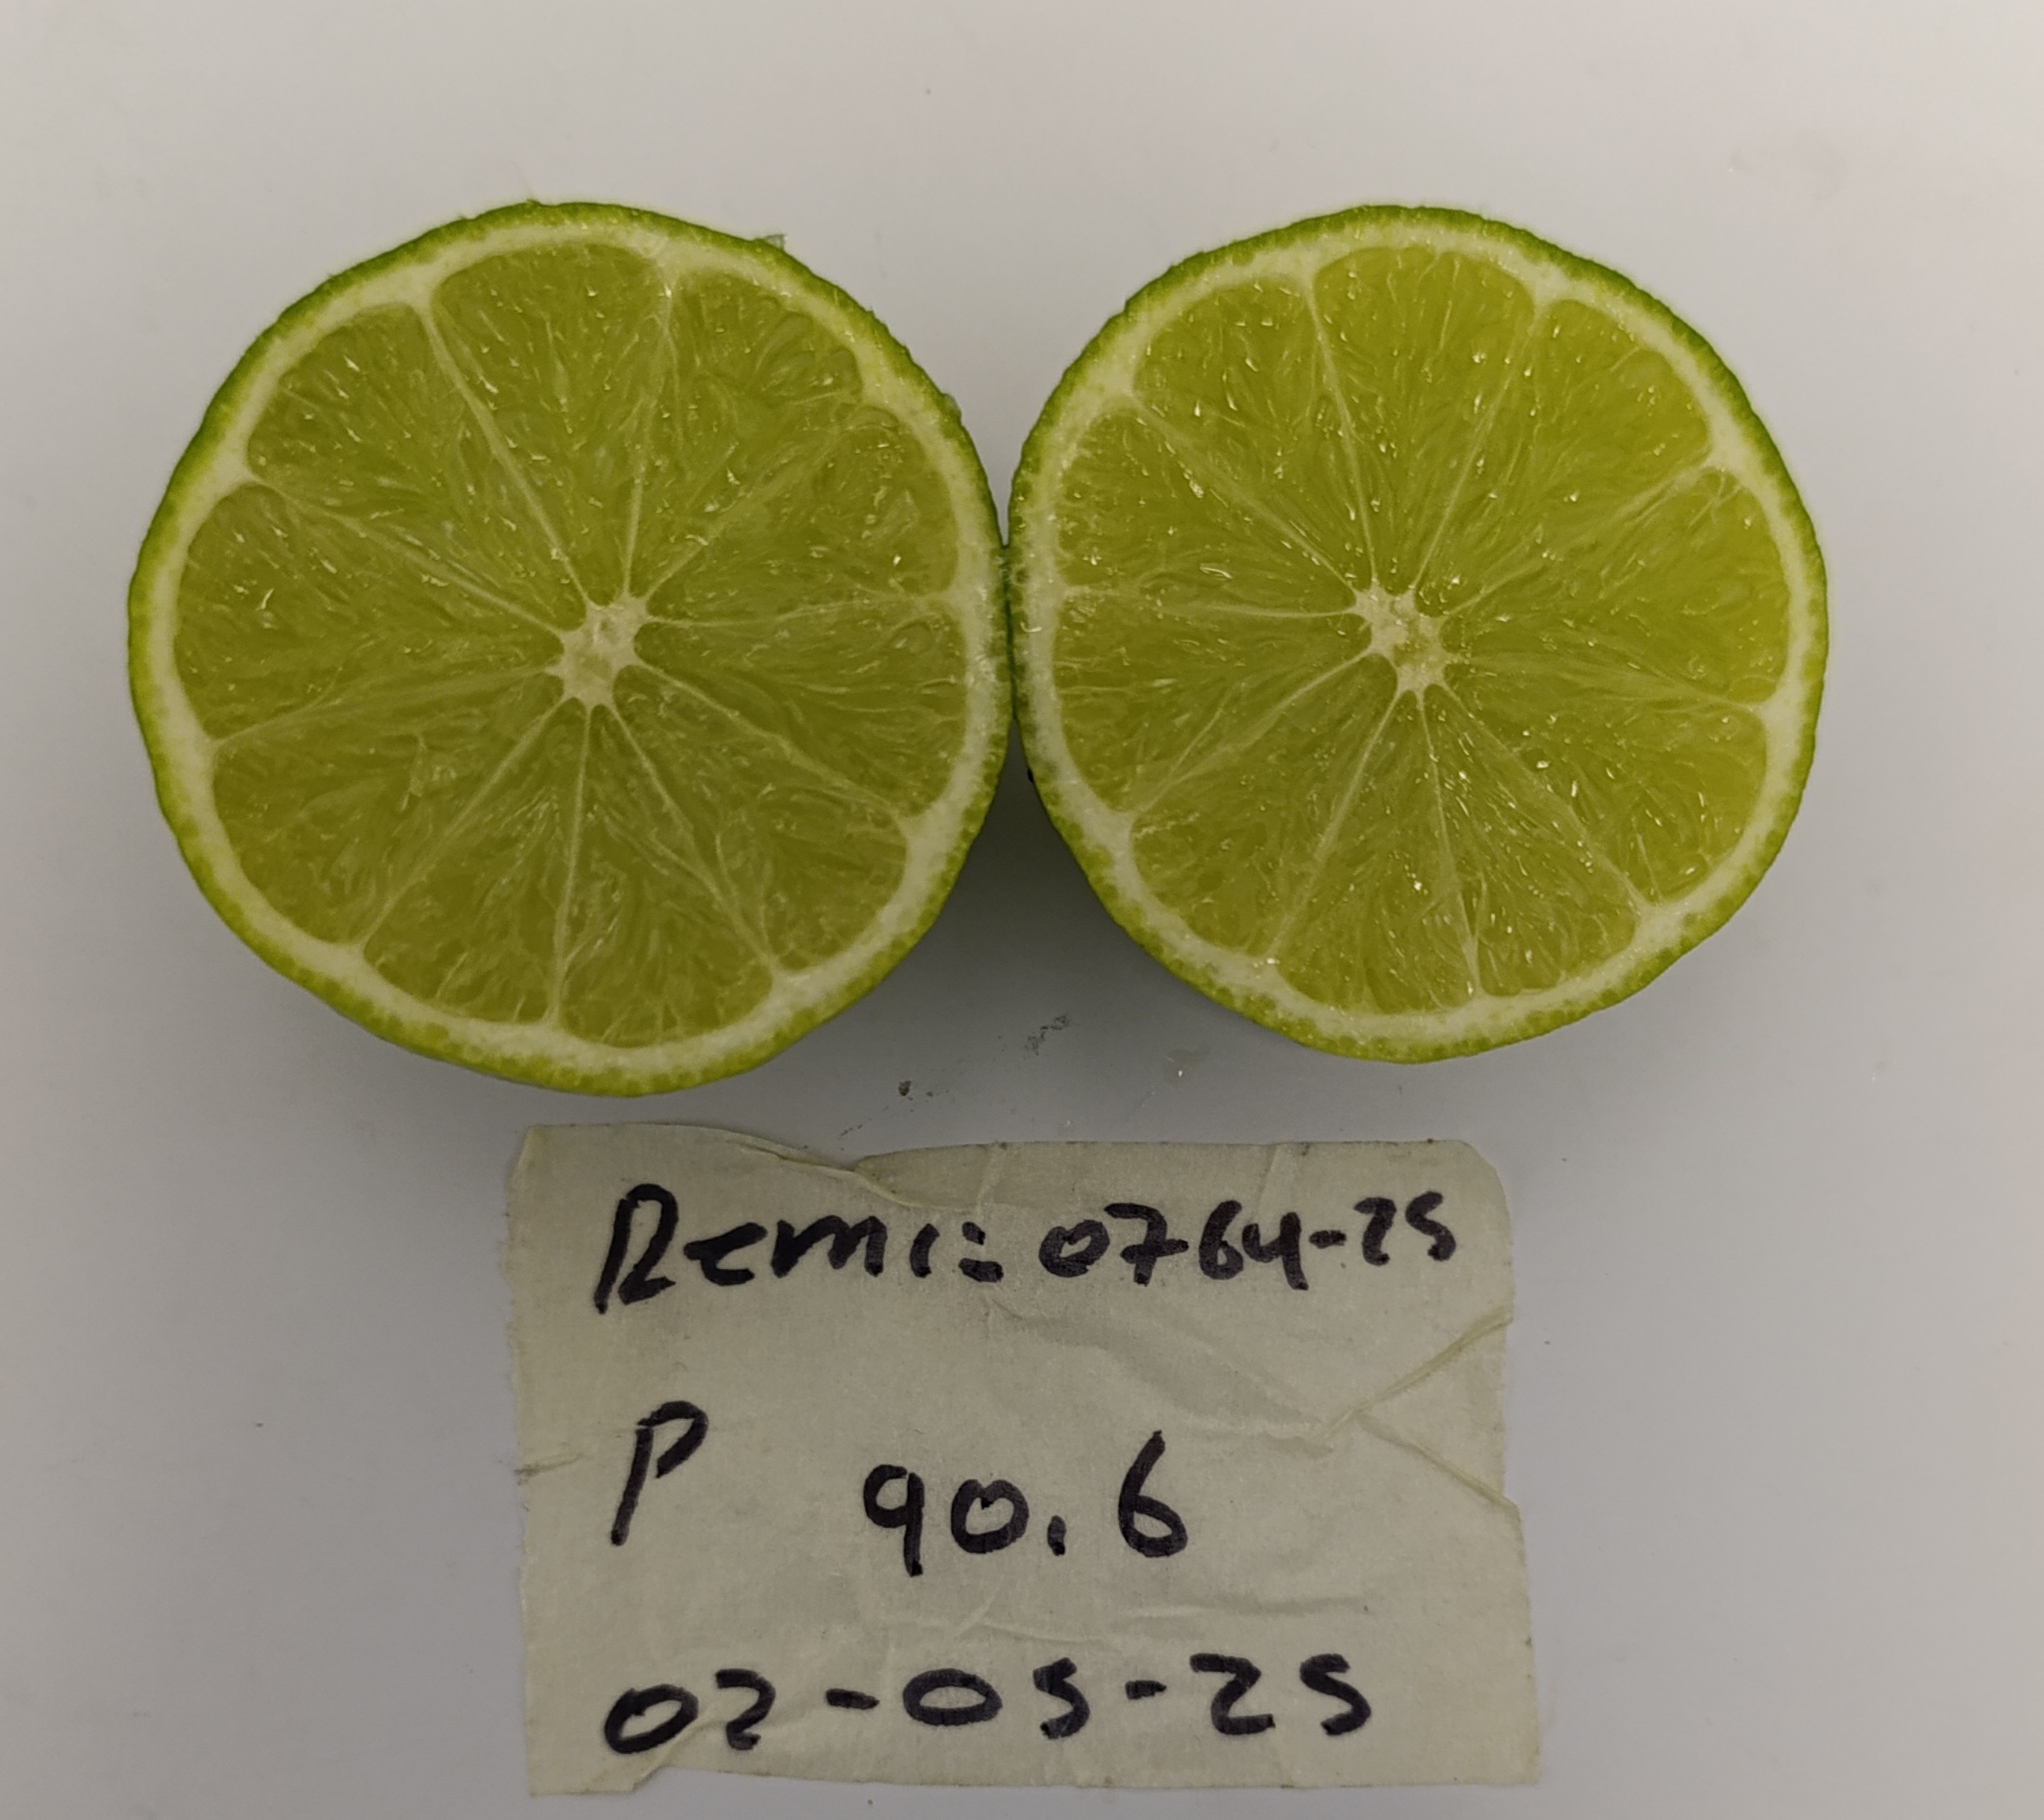 Remi: 0764-25
P 90.6
02-05-25